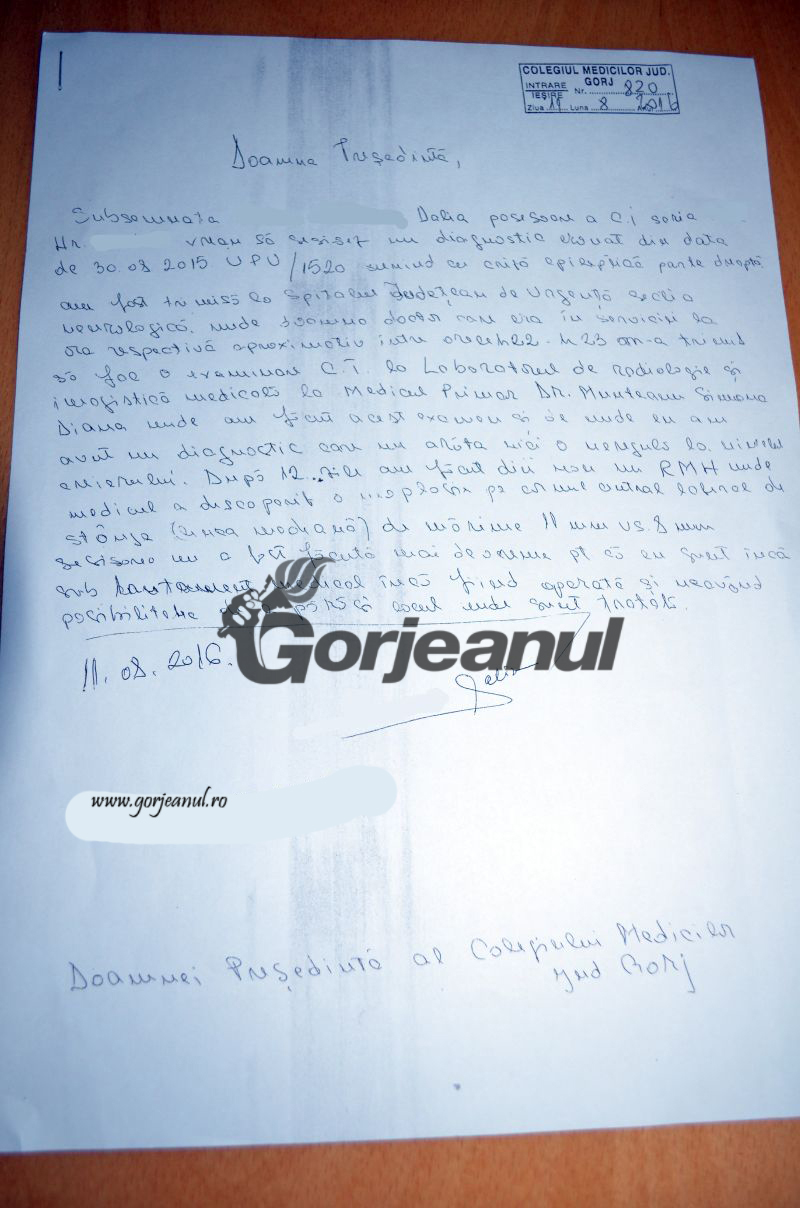 COLEGIUL MEDICILOR JUD.
GORJ
INTRARE
IEȘIRE Nr. 820
Ziua 11 Luna 8 2016
Doamna Președintă,
Subsemnata Dalia posesoare a C.i seria
Nr. vreau să sesisez un diagnostic eronat din data
de 30.08 2015 UPU/1520 venind cu criză epileptică parte dreaptă
am fost trimisă la Spitalul Județean de Urgență secția
neurologică. unde doamna doctor care era în serviciu la
ora respectivă aproximativ între orele 22 - 23 m-a trimis
să fac o examinare C.T. la Laboratorul de radiologie și
imagistică medicală la Medicul Primar Dr. Munteanu Simona
Diana unde am făcut acest examen și de unde eu am
avut un diagnostic care nu arăta nici o neregulă la nivelul
creierului. După 12 zile am făcut din nou un RMN unde
medicul a descoperit o pe lobul de
stânga de mărime 11 mm vs. 8 mm
sesisarea nu a fost făcută mai devreme pt că eu sunt încă
sub tratament medical încă fiind operată și neavând
posibilitatea de a părăsi locul unde sunt tratată.
11.08.2016.
Dalia
Gorjeanul
www.gorjeanul.ro
Doamnei Președintă al Colegiului Medicilor
Jud Gorj